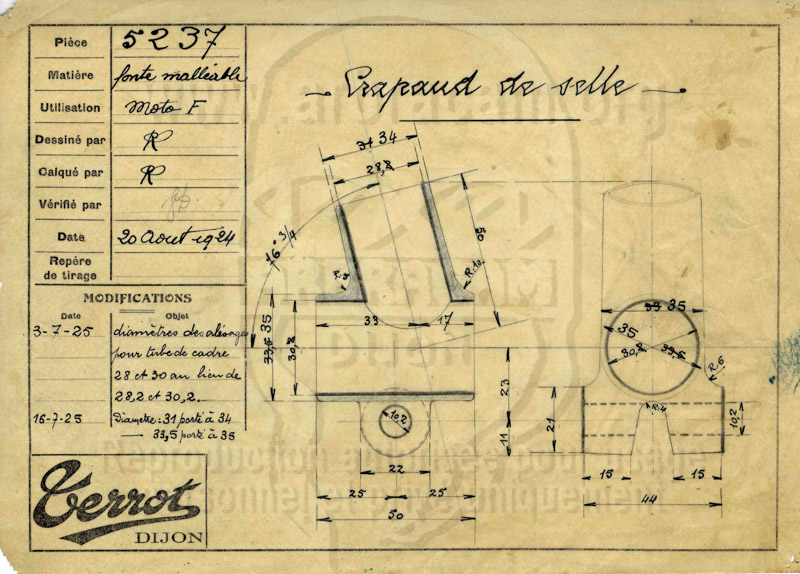 Pièce 5237
Matière fonte malléable
Utilisation Moto F
Dessiné par R
Calqué par R
Vérifié par
Date 20 Aout 1924
Repère
de tirage
MODIFICATIONS
Date Objet
3-7-25 diamètres des alesages
pour tube de cadre
28 et 30 au lieu de
28,2 et 30,2.
16-7-25 Diametre: 31 porté à 34
— 33,5 porté à 35
Terrot
DIJON
Crapaud de selle
31 34
28,2
16° 3/4
50
R.10
33
17
33,5 35
30,2
23
11
10,2
22
25
25
50
33 35
35
30,2
33,5
R.6
R.11
21
10,2
15
15
44